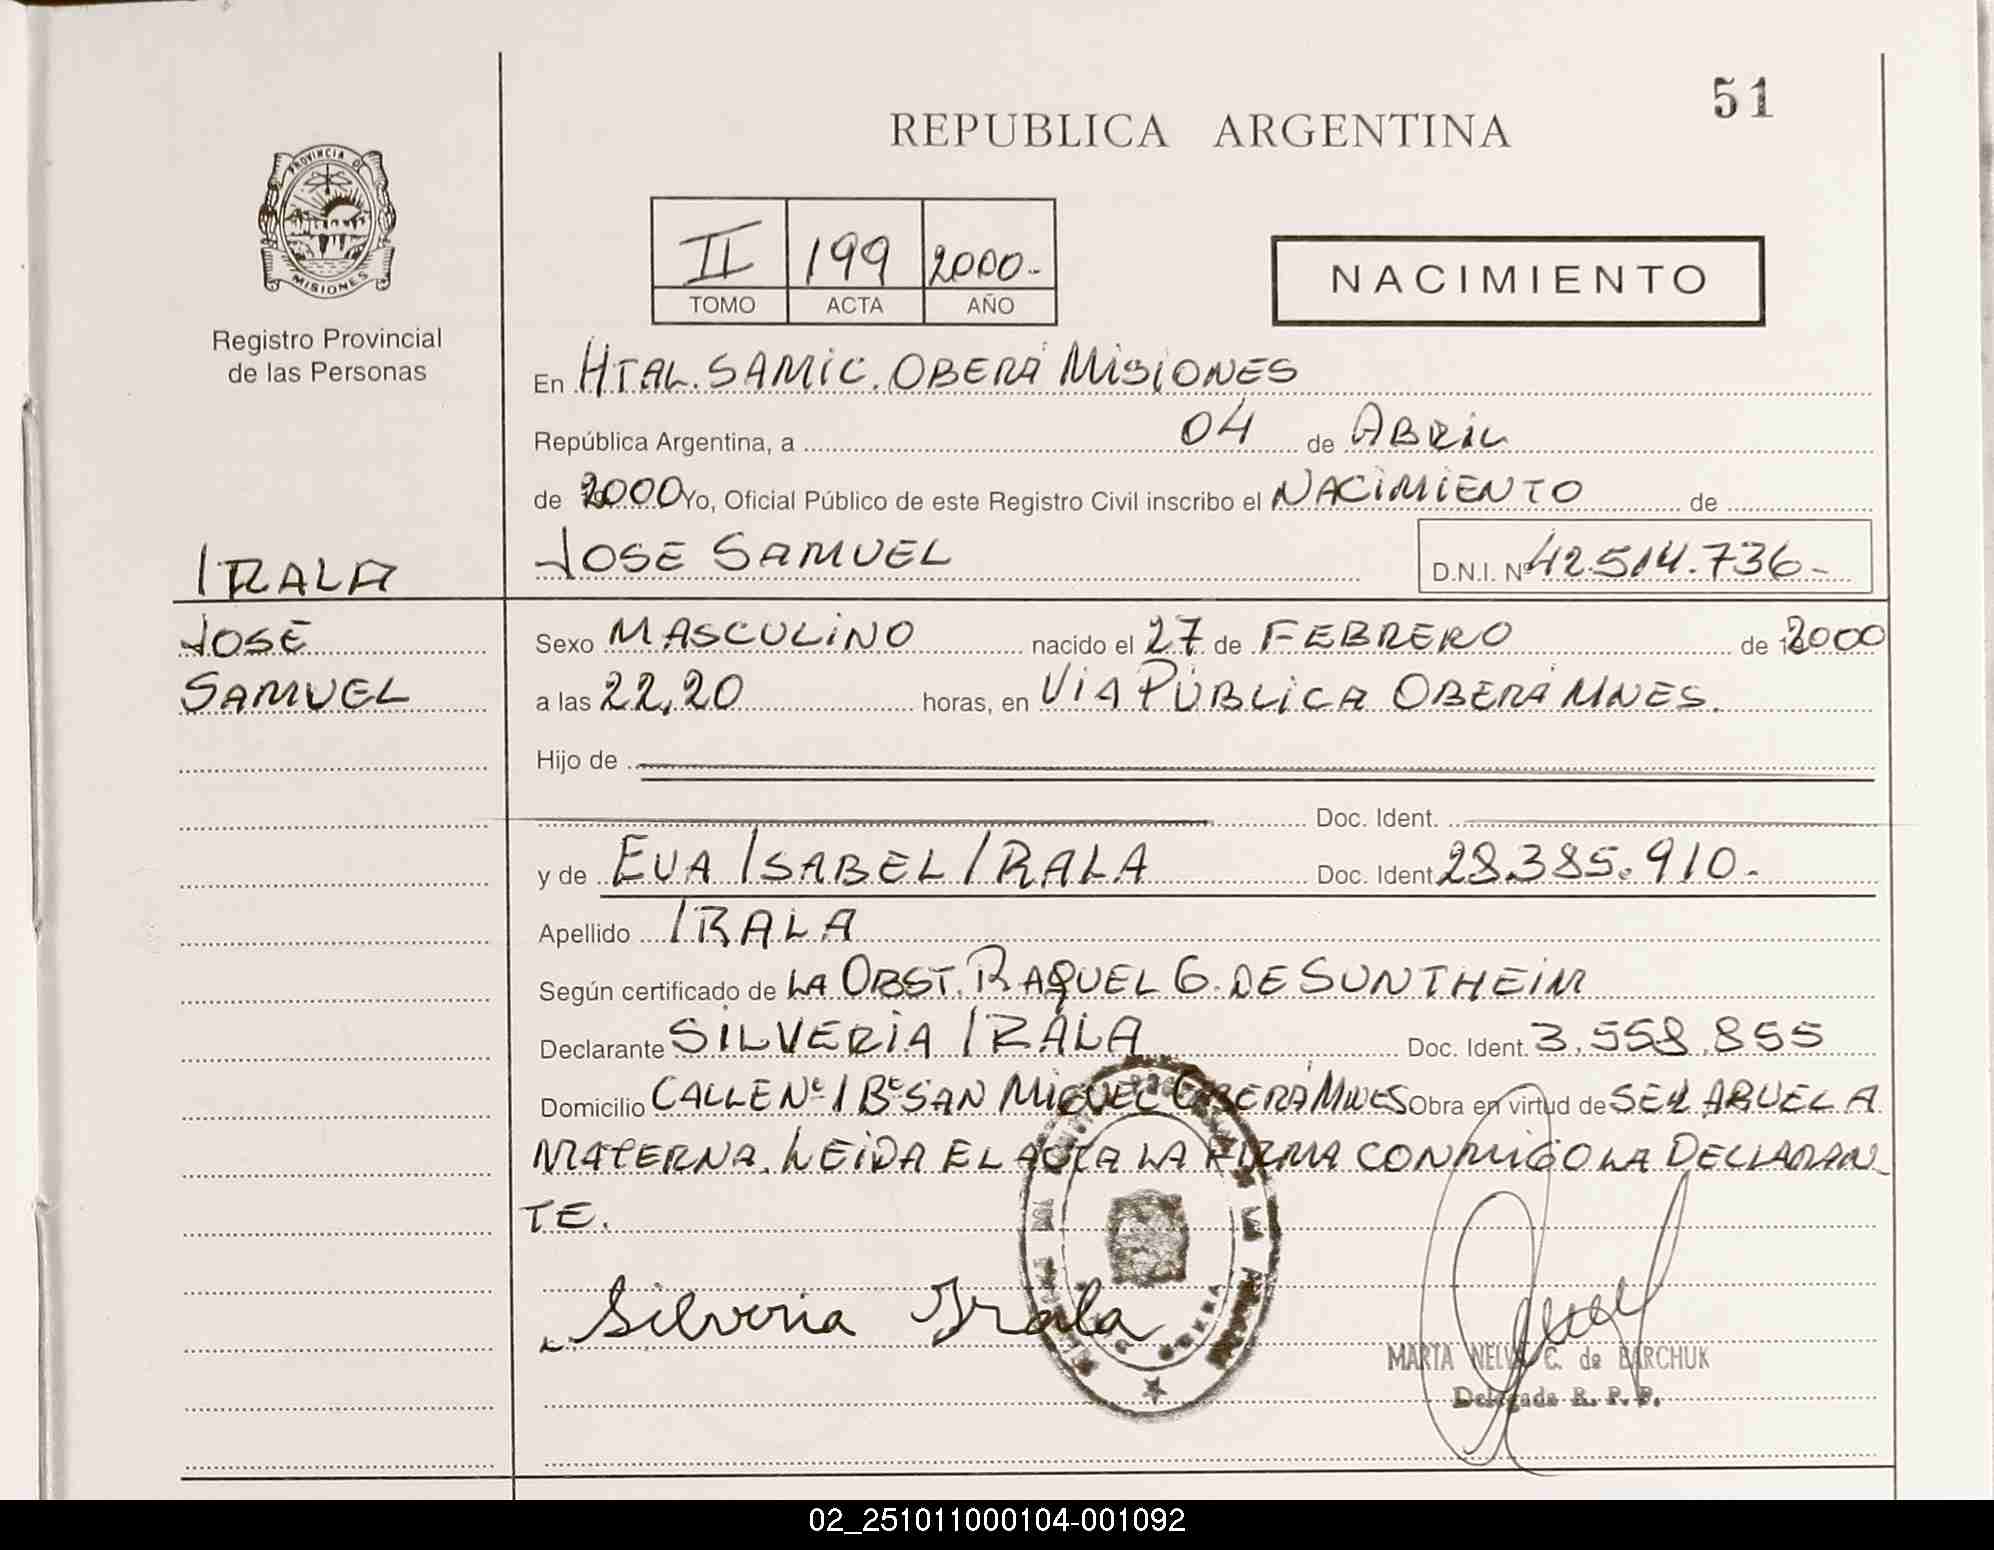 51
REPUBLICA ARGENTINA
PROVINCIA DE
MISIONES
Registro Provincial
de las Personas
II 199 2000.-
TOMO ACTA AÑO
NACIMIENTO
En HTAL. SAMIC. OBERÁ MISIONES
República Argentina, a 04 de ABRIL
de 2000 Yo, Oficial Público de este Registro Civil inscribo el NACIMIENTO de
JOSE SAMUEL D.N.I. Nº 42.514.736-
IRALA
JOSE
SAMUEL
Sexo MASCULINO nacido el 27 de FEBRERO de 2000
a las 22,20 horas, en VIA PÚBLICA OBERÁ MNES.
Hijo de
Doc. Ident.
y de EVA ISABEL IRALA Doc. Ident. 28.385.910.-
Apellido IRALA
Según certificado de LA OBST. RAQUEL G. DE SUNTHEIM
Declarante SILVERIA IRALA Doc. Ident. 3.558.855
Domicilio CALLE Nº 1 Bº SAN MIGUEL OBERÁ MNES Obra en virtud de SER ABUELA
MATERNA. LEIDA EL ACTA LA FIRMA CONMIGO LA DECLARAN-
TE.
Silveria Irala
MARTA NELVA C. de BARCHUK
Delegada R. P. P.
02_251011000104-001092